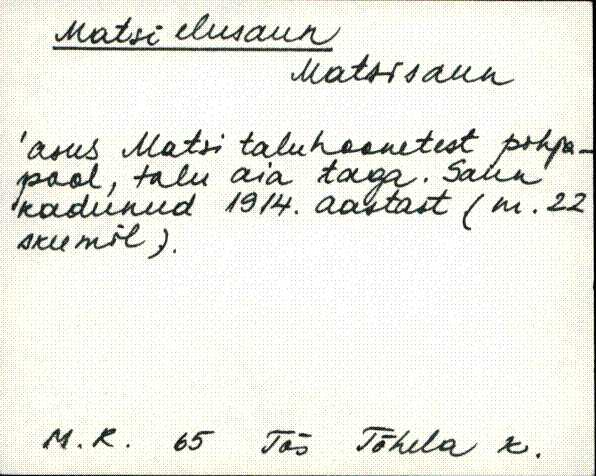 Matsi elusaun
Matsisaun
'asus Matsi taluhoonetest põhja-
pool, talu aia taga. Saun
kadunud 1914. aastast (nr. 22
skeemil).
M.R. 65 Tõs Tõhela k.